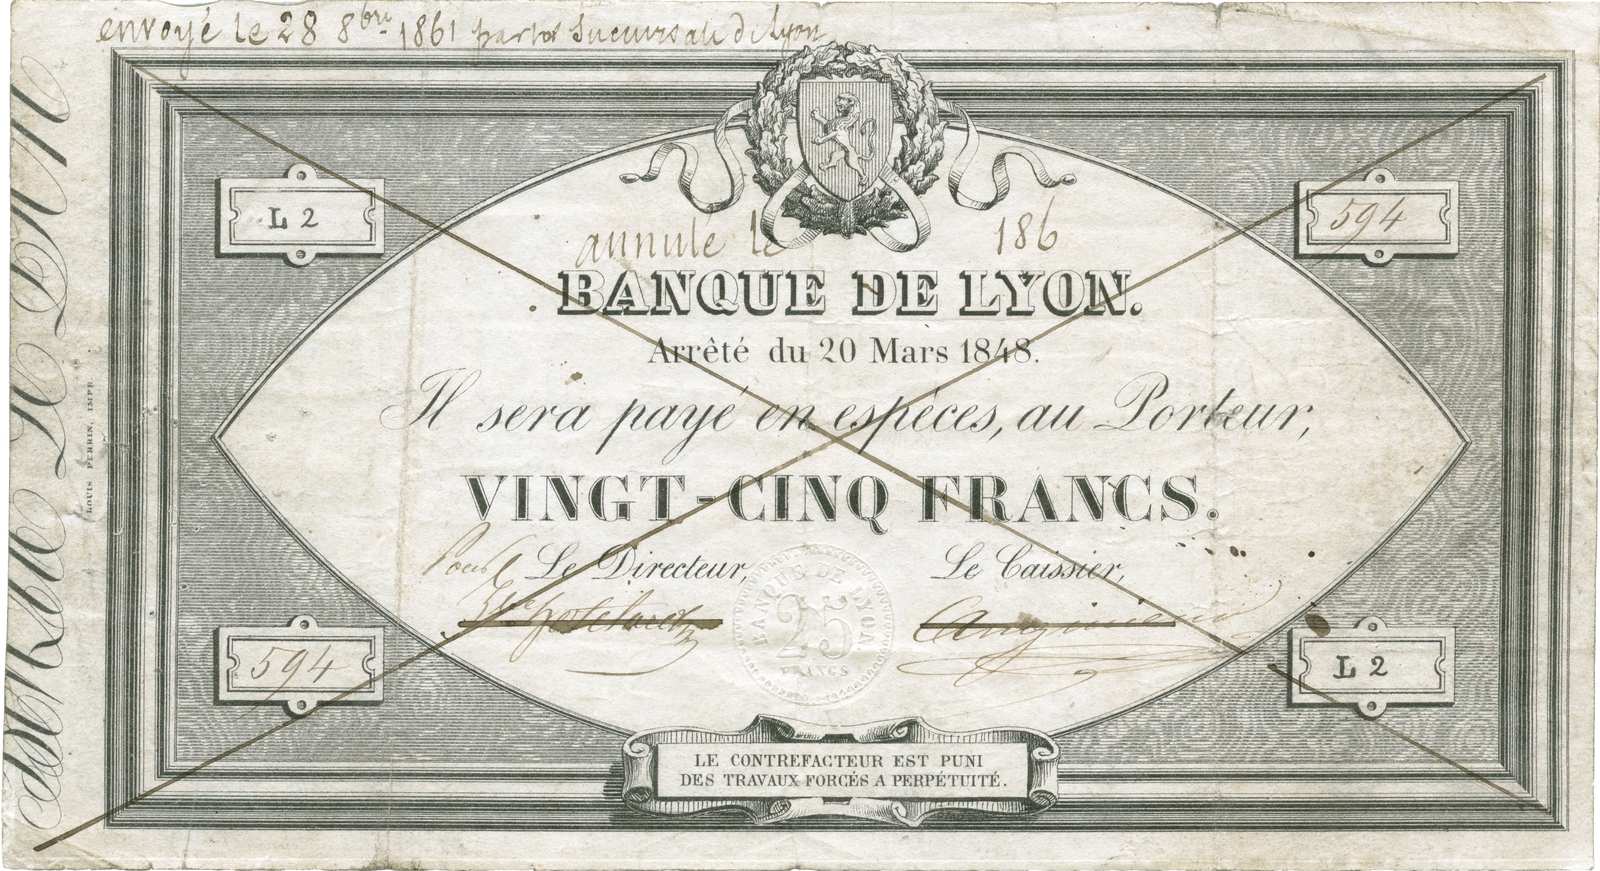 envoyé le 28 8bre 1861 par la Succursale de Lyon
L 2
594
annulé le 186
BANQUE DE LYON.
Arrêté du 20 Mars 1848.
Il sera payé en espèces, au Porteur,
VINGT-CINQ FRANCS.
Pour Le Directeur,
Le Caissier,
BANQUE DE LYON
25
FRANCS
594
L 2
LE CONTREFACTEUR EST PUNI
DES TRAVAUX FORCÉS A PERPÉTUITÉ.
LOUIS PERRIN, IMPR.